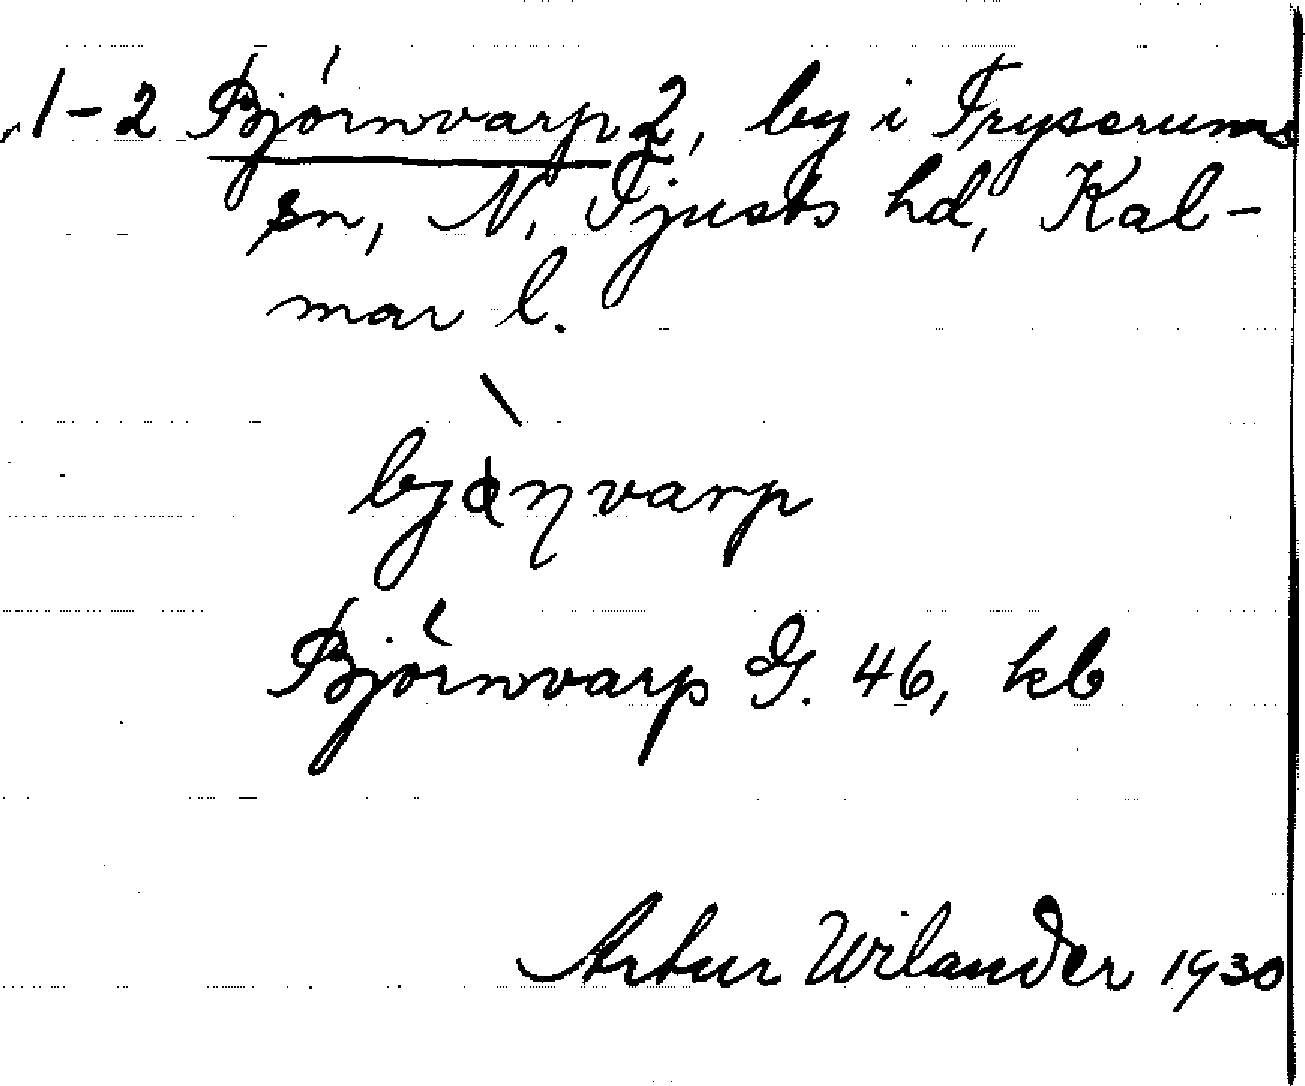 1-2 Björnvarp 2, by i Tryserums
sn, N. Tjusts hd, Kal-
mar l.
Björnvarp G. 46, kb
Artur Wilander 1930